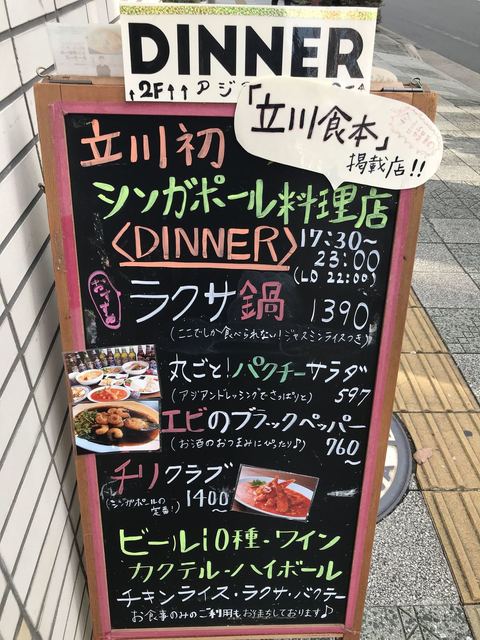 DINNER
↑2F↑↑ アジ
「立川食本」
掲載店!!
立川初
シンガポール料理店
〈DINNER〉 17:30〜
23:00
(LO 22:00)
おすすめ
ラクサ鍋 1390
(ここでしか食べられない!ジャスミンライスつき)
丸ごと!パクチーサラダ
(アジアンドレッシングでさっぱりと) 597
エビのブラックペッパー
(お酒のおつまみにぴったり♪) 760〜
チリクラブ
(シンガポールの定番!) 1400〜
ビール10種・ワイン
カクテル・ハイボール
チキンライス・ラクサ・バクテー
お食事のみのご利用もお待ちしております♪